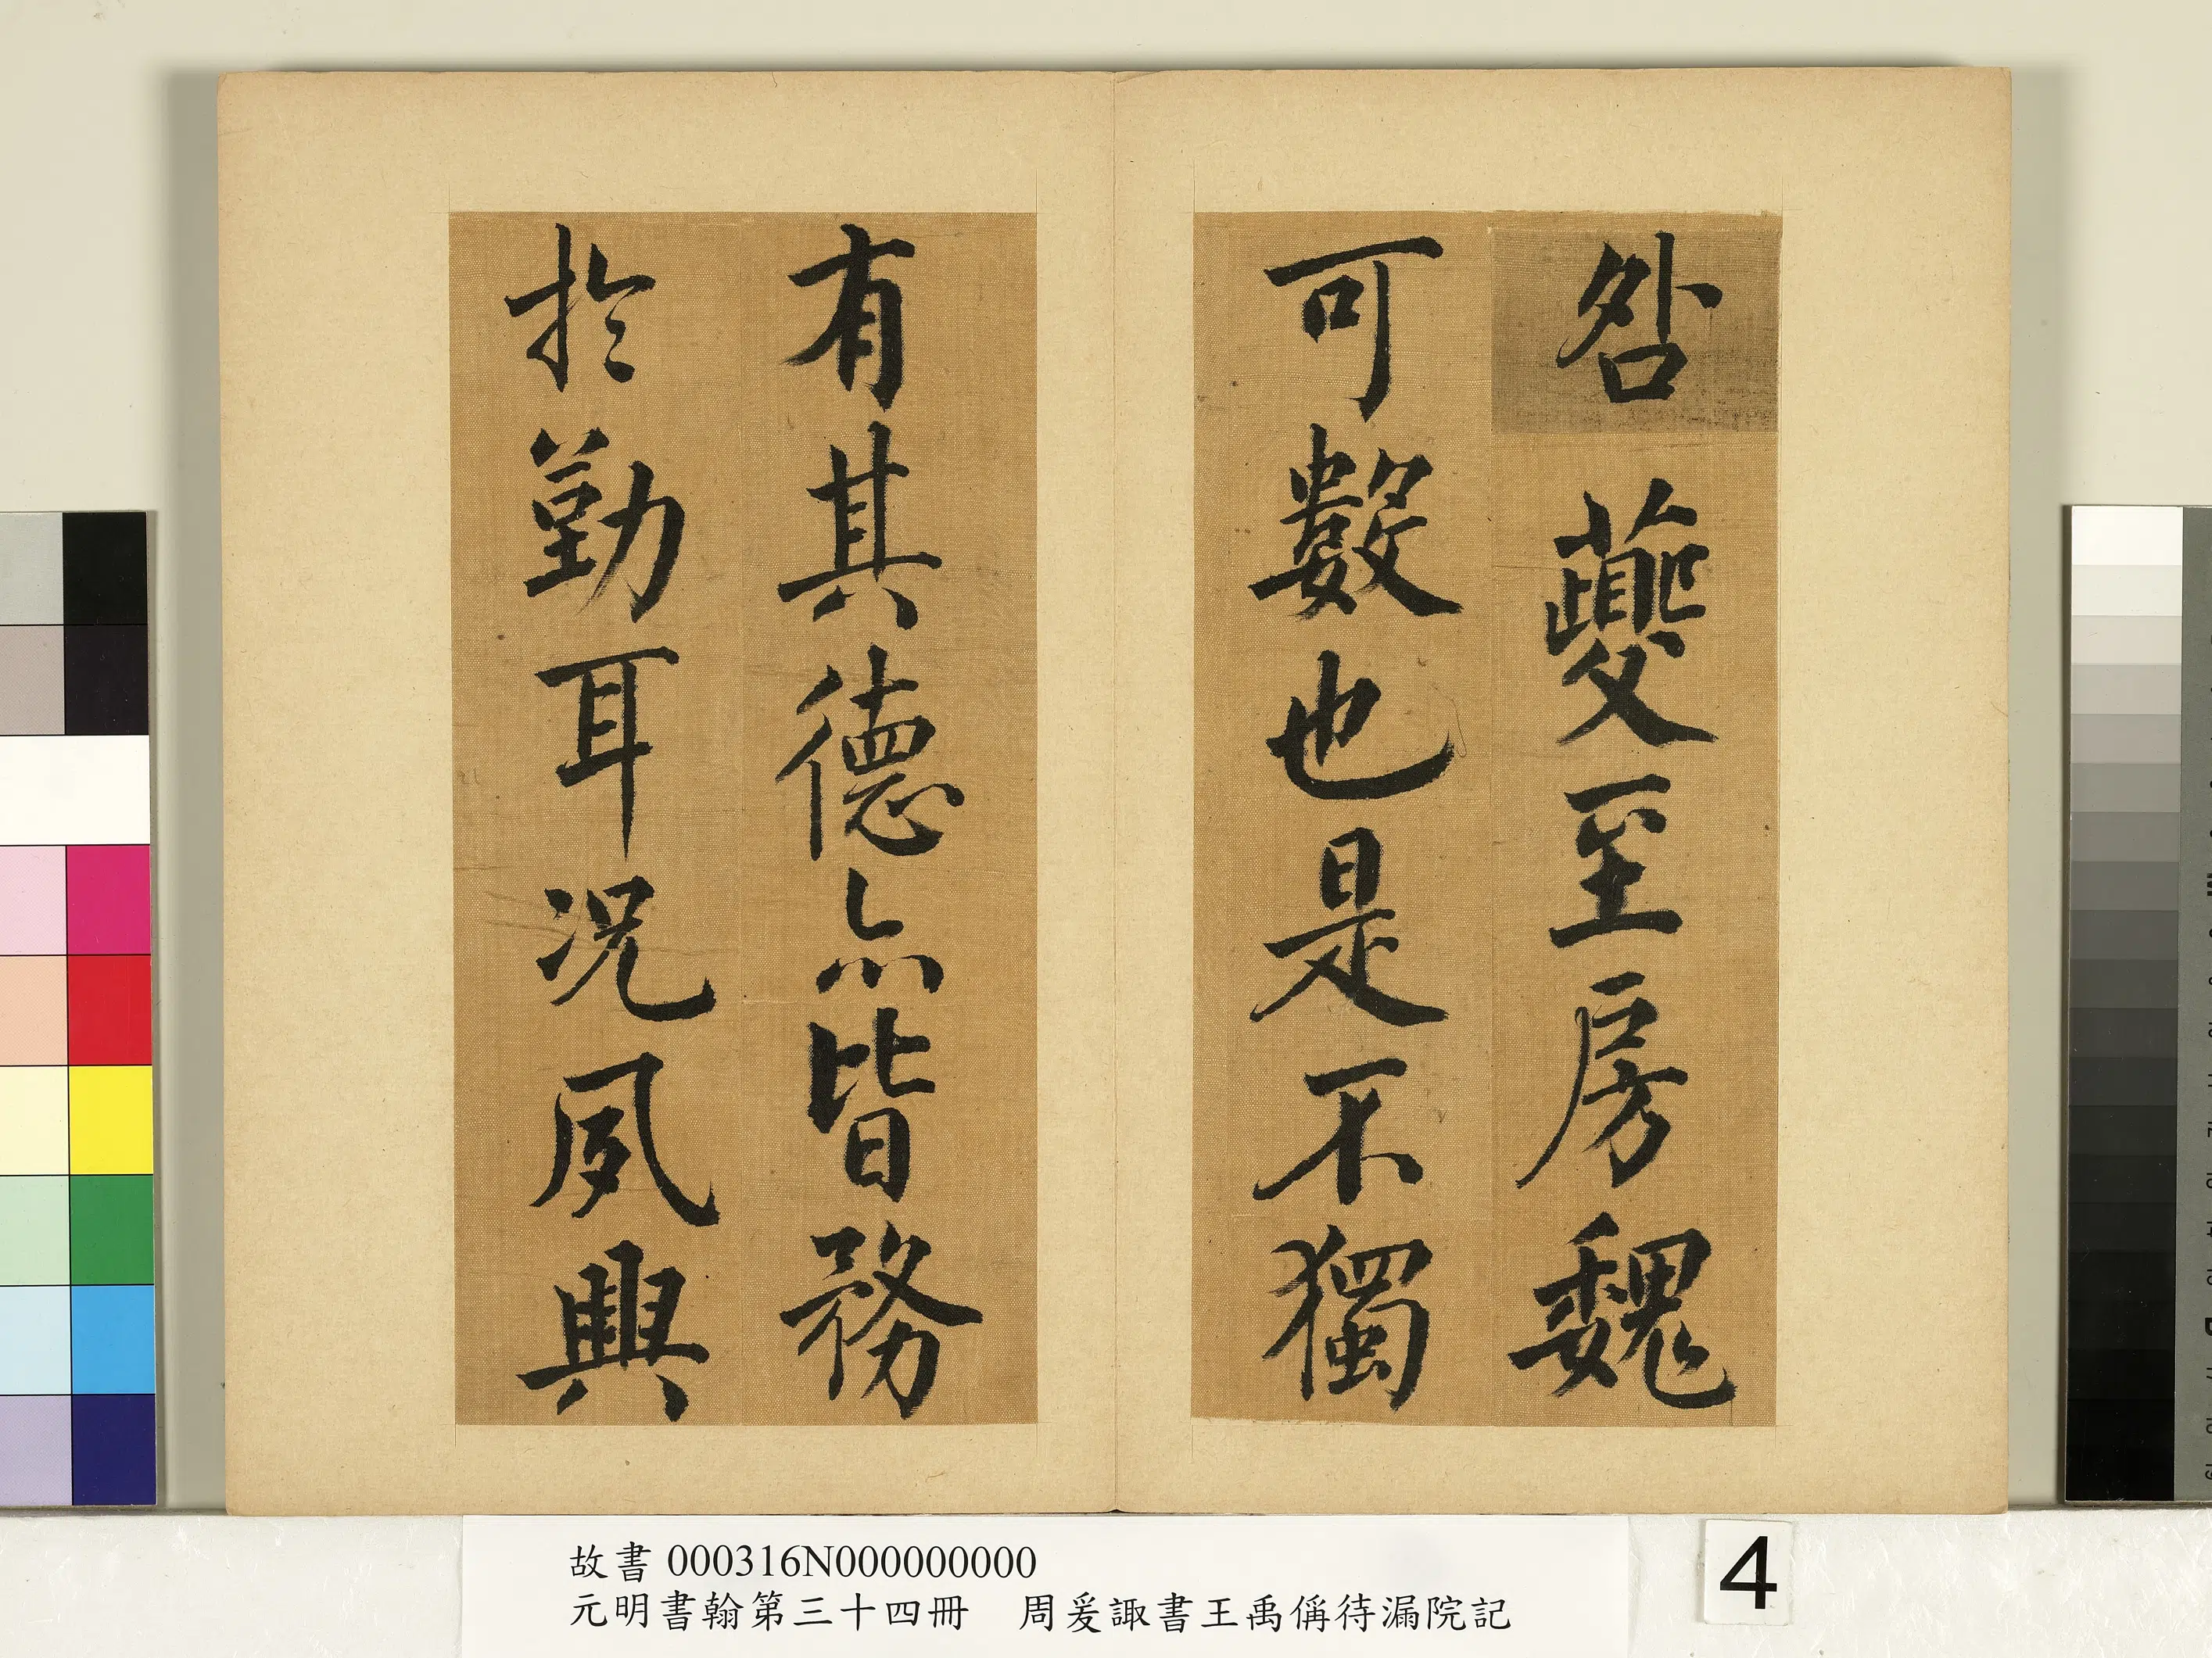 咎夔至房魏
可數也是不獨
有其德亦皆務
於勤耳况夙興
故書000316N000000000
元明書翰第三十四冊　周爰諏書王禹偁待漏院記
4